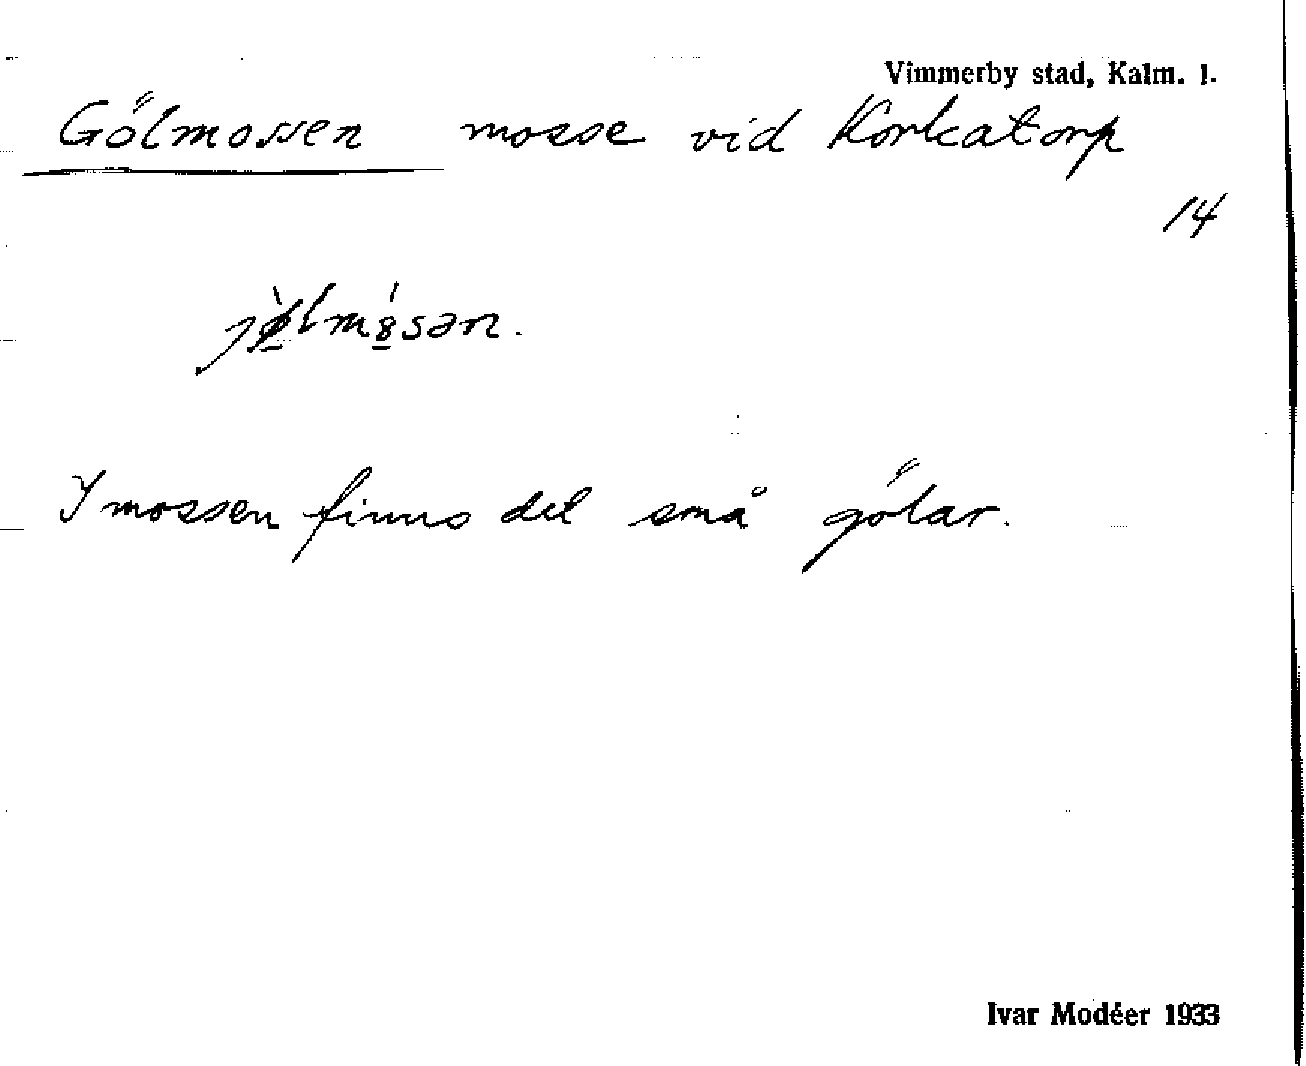 Vimmerby stad, Kalm. l.
Gölmossen mosse vid Korkatorp
14
jø̀lmósən.
I mossen finns det små gölar.
Ivar Modéer 1933